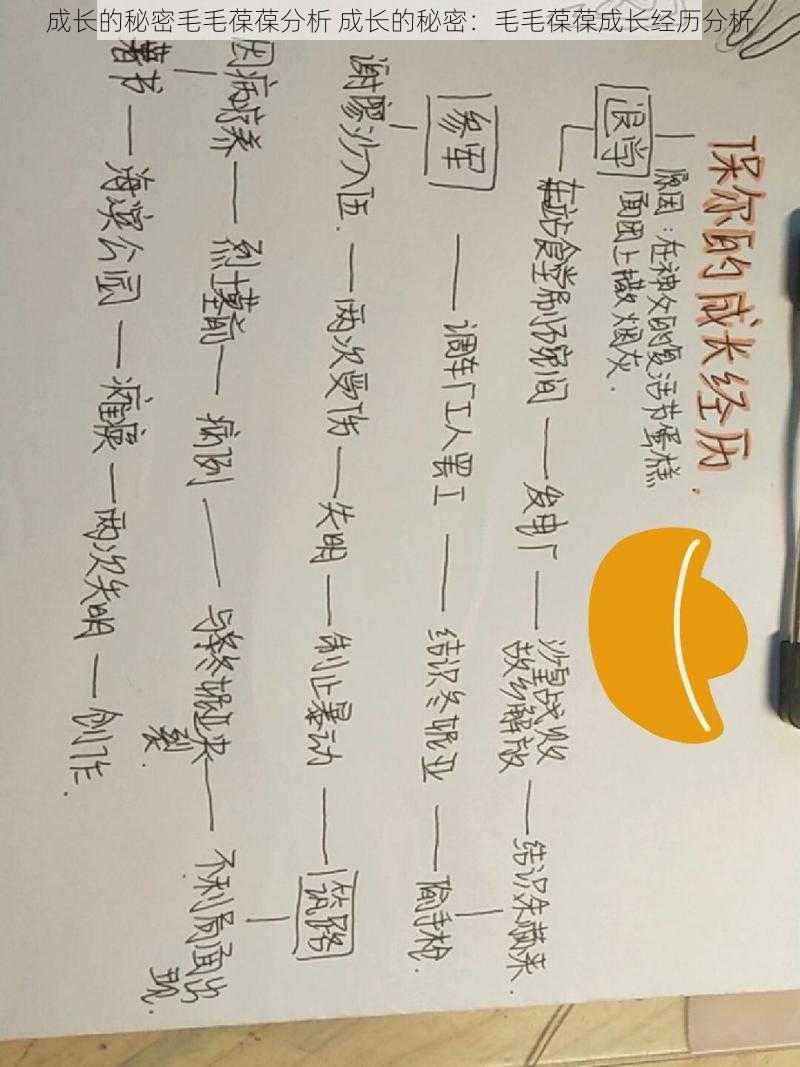 成长的秘密毛毛葆葆分析 成长的秘密：毛毛葆葆成长经历分析
保尔的成长经历.
原因：在神父的复活节蛋糕
面团上撒烟灰.
退学
车站食堂刷碗间 — 发电厂 — 沙皇战败 故乡解放 — 结识朱赫来.
参军 — 调车厂工人罢工 — 结识冬妮亚 — 偷手枪.
谢廖沙入伍. — 两次受伤 — 失明 — 制止暴动 — 筑路
因病疗养 — 烈士墓前 — 病倒 — 与冬妮亚决裂. — 不利局面出现.
著书 — 海滨公园 — 瘫痪 — 两次失明 — 创作.